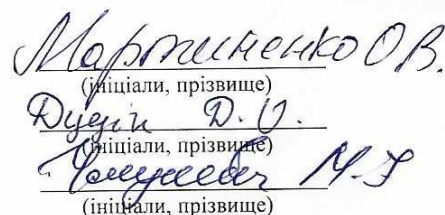 Мартиненко О.В.
(ініціали, прізвище)
Дудін Д. О.
(ініціали, прізвище)
М.
(ініціали, прізвище)